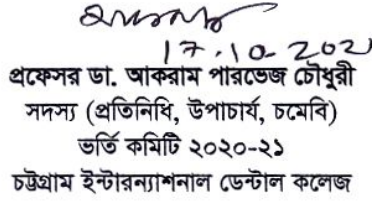 17.10.202
প্রফেসর ডা. আকরাম পারভেজ চৌধুরী
সদস্য (প্রতিনিধি, উপাচার্য, চমেবি)
ভর্তি কমিটি ২০২০-২১
চট্টগ্রাম ইন্টারন্যাশনাল ডেন্টাল কলেজ